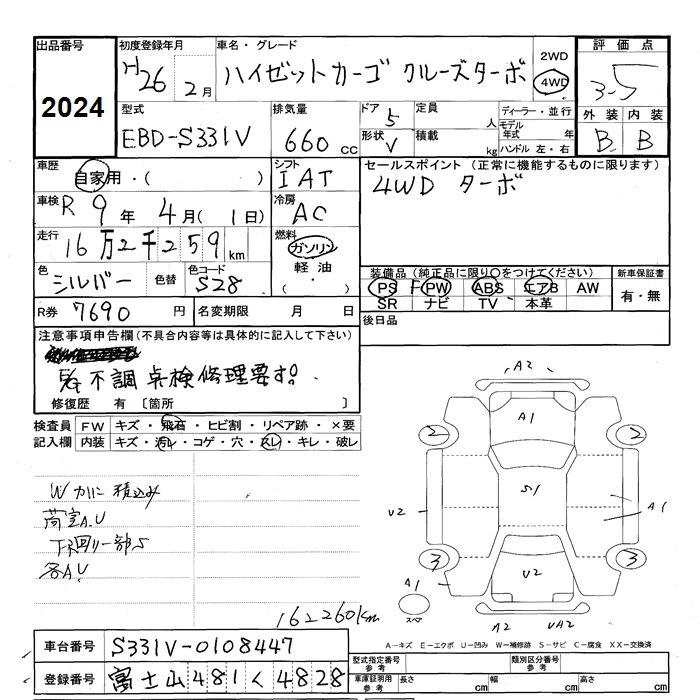 出品番号 初度登録年月 車名・グレード 2WD 評価点
2024 H26 2月 ハイゼットカーゴ クルーズターボ 4WD 3-5
型式 排気量 ドア 定員 ディーラー・並行 外装 内装
EBD-S331V 660 CC 5 人 モデル年式 年 B B
形状 V 積載 kg ハンドル 左・右
車歴 自家用・( ) シフト IAT セールスポイント (正常に機能するものに限ります)
車検 R 9年 4月( 1日) 冷房 AC 4WD ターボ
走行 16万2千259km 燃料 ガソリン
軽油
色 シルバー 色替 色コード S28 装備品(純正品に限り○をつけてください) 新車保証書
PS PW ABS エアB AW 有・無
SR ナビ TV 本革
R券 7690円 名変期限 月 日 後日品
注意事項申告欄(不具合内容等は具体的に記入して下さい)
不調 点検修理要す。
修復歴 有 〔箇所 〕
検査員 FW キズ・飛石・ヒビ割・リペア跡・×要
記入欄 内装 キズ・汚れ・コゲ・穴・スレ・キレ・破レ
A2
A1
2 2
Wカバに積込み
荷室A.U
下回り一部S
各A.U
U2 S1 A1
3 3
U2
A1
スペア
A2 UA2
162260km
A-キズ E-エクボ U-凹み W-補修跡 S-サビ C-腐食 XX-交換済
車台番号 S331V-0108447
登録番号 富士山481く4828
型式指定番号 参考 類別区分番号 参考
車庫証明用 参考 長さ cm 幅 cm 高さ cm